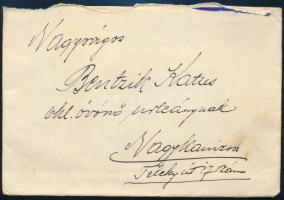 Nagyságos
Bentzik Katus
okl. óvónő urleánynak
Nagykanizsa
Teleky út 17 szám